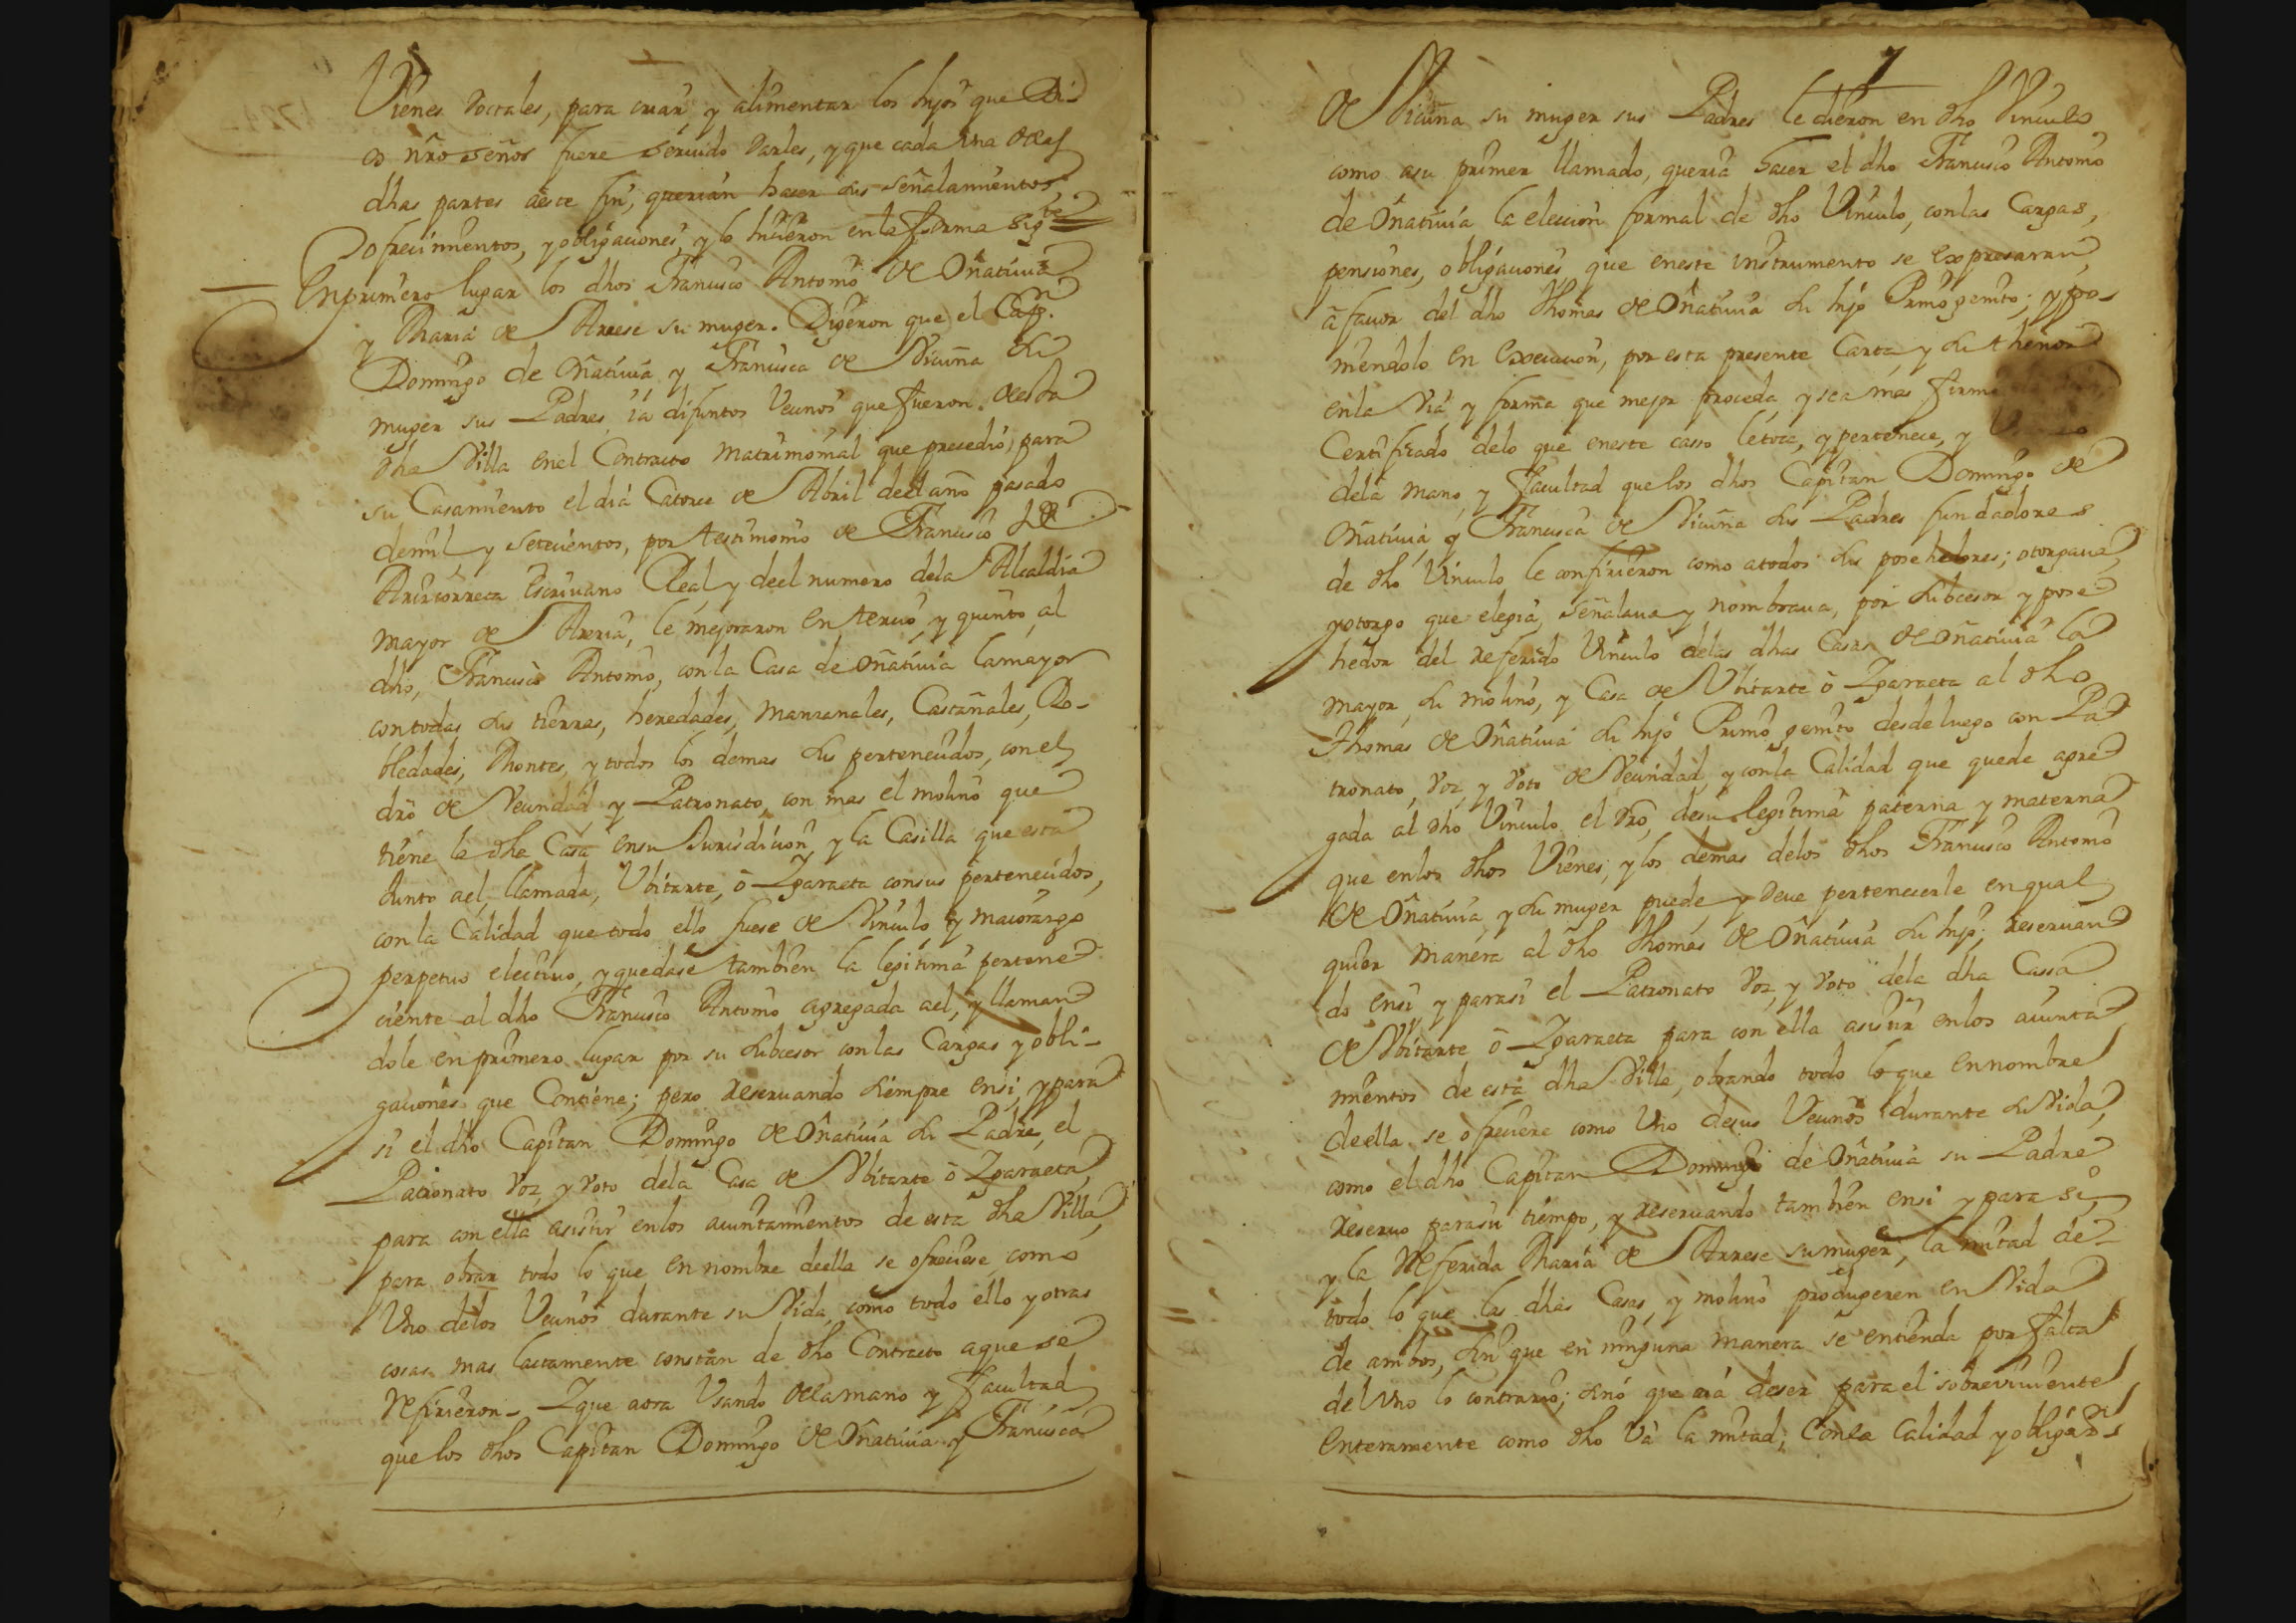 Vienes Doctales, para criar, y alimentar los hijos que Di-
os nro señor fuere seruido Darles, y que cada Vna de las
dhas partes a este fin; querian hacer sus señalamientos,
ofrecimientos, y obligaciones, y lo hiçieron en la forma sigte
En primero lugar los dhos Françisco Antonio de Oñatiuia
y Maria de Arrese su muger. Digeron que el Capn.
Domingo de Oñatiuia y Françisca de Vicuña su
muger sus Padres ia difuntos Veçinos que fueron de esta
dha Villa en el Contracto matrimonial que precedio para
su Casamiento el dia Catorce de Abril de el año pasado
de mil y setecientos, por testimonio de Francisco de
Ariscorreta Escriuano Real y de el numero de la Alcaldia
mayor de Areria, le mejoraron en terçio y quinto al
dho, Francisco Antonio, con la Casa de Oñatiuia la mayor
con todas sus tierras, heredades, manzanales, Castañales, Ro-
bledades, Montes, y todos los demas sus pertenecidos, con el
dro de Vecindad y Patronato, con mas el molino que
tiene la dha Casa en su Jurisdicion, y la Casilla que esta
Junto a el, llamada, Vbitarte, ò Zgaraeta con sus pertenecidos,
con la Calidad que todo ello fuese de Vinculo y maiorazgo
perpetuo electiuo, y quedase tambien la legitima pertene
ciente al dho Francisco Antonio agregada a el, y llaman
dole en primero lugar por su subcesor con las Cargas y obli-
gaciones que Contiene; pero reseruando siempre en si, y para
si el dho Capitan Domingo de Oñatiuia su Padre, el
Patronato Voz, y Voto de la Casa de Vbitarte ò Zgaraeta,
para con ella asistir en los aiuntamientos de esta dha Villa,
para obrar todo lo que en nombre de ella se ofreciese como
Vno de los Vecinos durante su Vida, como todo ello y otras
cosas mas latamente constan de dho Contracto a que se
refirieron - Zque aora Vsando de la mano y facultad
que los dhos Capitan Domingo de Oñatiuia y Francisca
7
de Vicuña su muger sus Padres le dieron en dho Vinculo
como a su primer llamado, queria hacer el dho Francisco Antonio
de Oñatiuia la eleccion formal de dho Vinculo, con las Cargas,
pensiones, obligaciones, que en este instrumento se expresaran,
à fauor del dho Thomas de Oñatiuia su hijo Primogenito; y po-
niendolo en execucion, por esta presente Carta, y su thenor
en la Via, y forma que mejor proceda, y sea mas firme
Certificado de lo que en este casso le toca, y pertenece, y
de la mano, y facultad que los dhos Capitan Domingo de
Oñatiuia, y Francisca de Vicuña sus Padres fundadores
de dho Vinculo le confirieron como a todos sus posehedores; otorgaua,
y otorgo que elegia, señalaua y nombraua, por subcesor y pose
hedor del referido Vinculo de las dhas Casas de Oñatiuia la
mayor, su molino, y Casa de Vbitarte ò Zgaraeta al dho
Thomas de Oñatiuia su hijo Primogenito desde luego con Pa
tronato, Voz, y Voto de Vecindad, y con la Calidad que quede agre
gada al dho Vinculo el dro, de su legitima paterna y materna
que en los dhos Vienes, y los demas de los dhos Francisco Antonio
de Oñatiuia y su muger puede, y deue pertenecerle en qual
quier manera al dho Thomas de Oñatiuia su hijo; reseruan
do en si, y para si el Patronato Voz, y Voto de la dha Cassa
de Vbitarte ò Zgaraeta para con ella asistir en los aiunta
mientos de esta dha Villa, obrando todo lo que en nombre
de ella se ofreciere como Vno de sus Vecinos durante su Vida,
como el dho Capitan Domingo de Oñatiuia su Padre
reseruo para su tiempo, y reseruando tambien en si y para si,
y la referida Maria de Arrese su muger, la mitad de
todo lo que las dhas Casas, y molino produgeren en Vida
de ambos, sin que en ninguna manera se entienda por falta
del Vno lo contrario; sinó que aia de ser para el sobreviuiente
enteramente como dho Và la mitad; Con la Calidad y obligaon